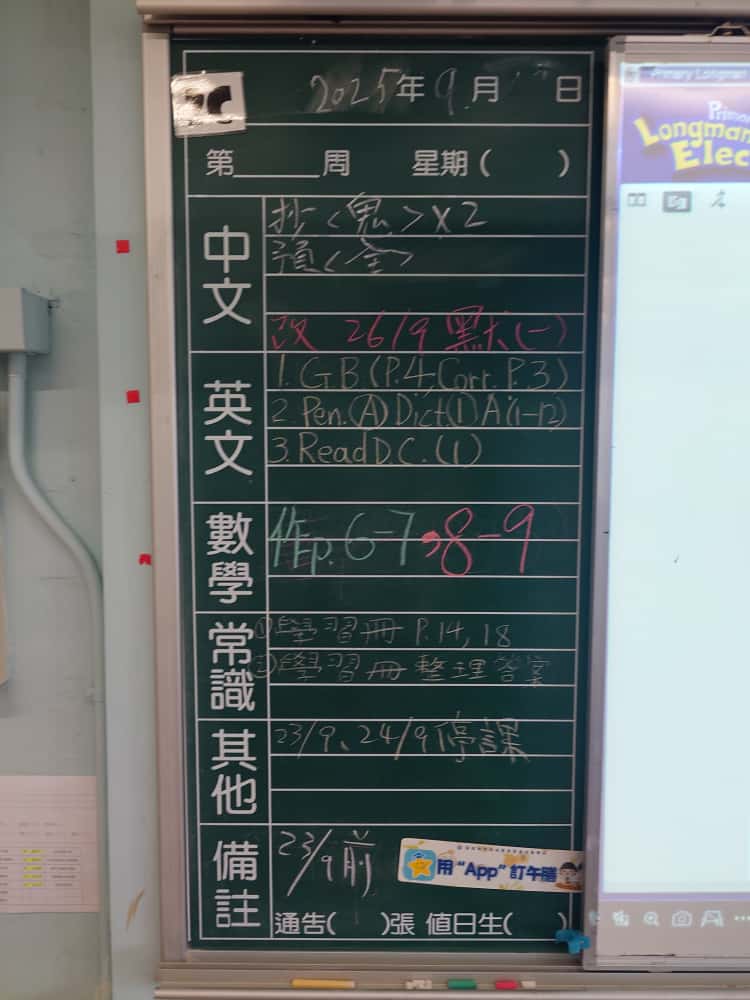 2025年9月 日
第 周 星期( )
中文
抄〈鬼〉x2
預〈全〉
改 26/9 默(一)
英文
1. G.B(P.4, Corr. P.3)
2. Pen.(A) Dict.(1) A(1-12)
3. Read D.C.(1)
數學
作p.6-7,8-9
常識
①學習冊 P.14,18
②學習冊整理答案
其他
23/9、24/9停課
備註
23/9前
用 "App" 訂午膳
通告( )張 值日生( )
Primary Longman
Longman
Elec